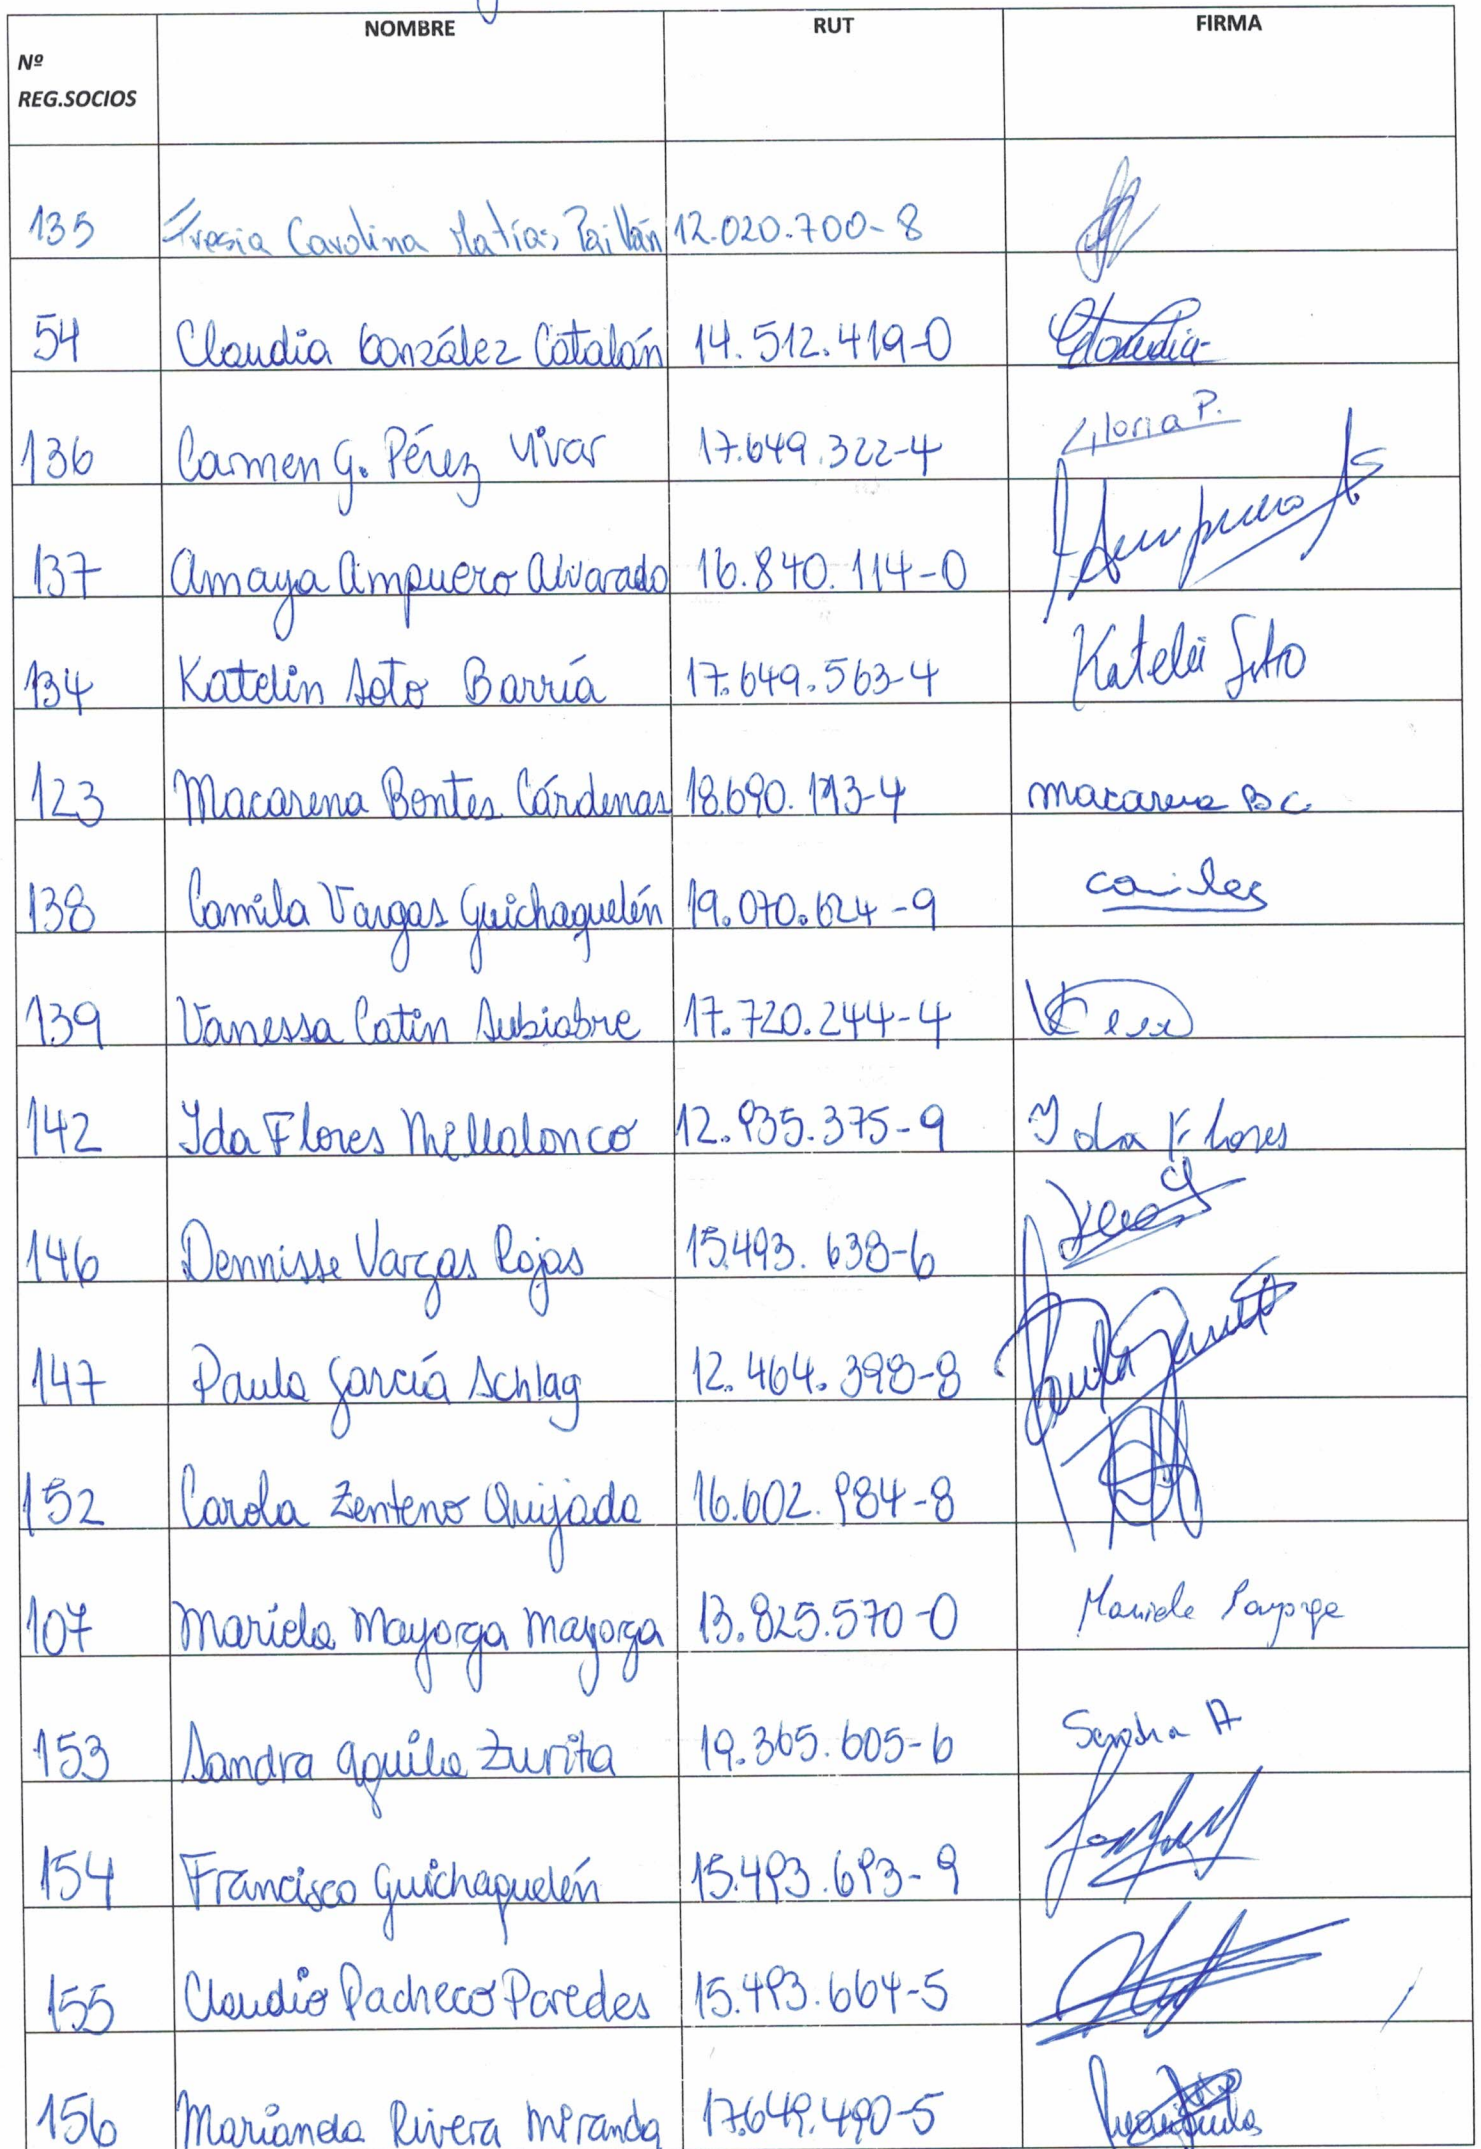 NOMBRE RUT FIRMA
Nº
REG.SOCIOS
135 Fresia Carolina Matías Paillán 12.020.700-8
54 Claudia González Catalán 14.512.419-0 Claudia
136 Carmen G. Pérez Vivar 17.649.322-4 Gloria P.
137 Amaya Ampuero Alvarado 16.840.114-0 Ampuero
134 Katelin Soto Barría 17.649.563-4 Katelin Soto
123 Macarena Bontes Cárdenas 18.690.193-4 Macarena BC
138 Camila Vargas Guichaquelén 19.070.624-9 Camila
139 Vanessa Catin Subiabre 17.720.244-4
142 Ida Flores Mellalonco 12.935.375-9 Ida Flores
146 Dennisse Vargas Rojas 15.493.638-6
147 Paula García Schlag 12.464.398-8
152 Carola Zenteno Quijada 16.602.984-8
107 Mariela Mayorga Mayorga 13.825.570-0 Mariela Mayorga
153 Sandra Aguila Zurita 19.365.605-6 Sandra A
154 Francisco Guichaquelén 15.493.693-9
155 Claudio Pacheco Paredes 15.493.664-5
156 Marianela Rivera Miranda 17.649.490-5